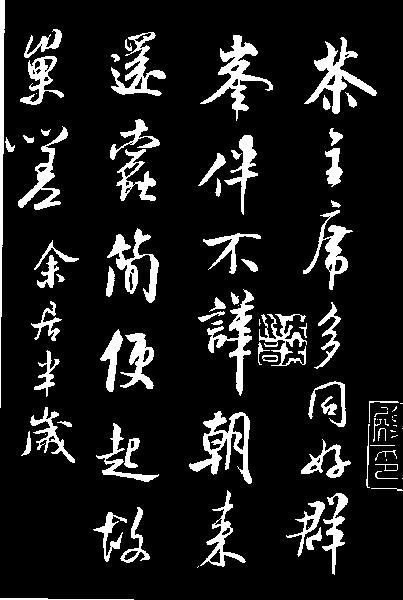 茶主席多同好群
峯伴不譁朝来
還蠹簡便起故
巢嗟余居半歲